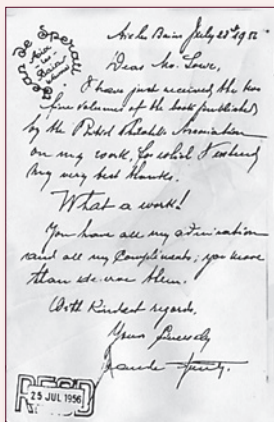 JEAN DE SPERATI
Aix les Bains July 23st 1956
Dear Mr. Lowe,
I have just received the two
fine volumes of the book published
by the British Philatelic Association
on my work, for which I extend
my very best thanks.
What a work!
You have all my admiration
and all my compliments; you more
than deserve them.
With Kindest regards,
Yours Sincerely
RECD
25 JUL 1956